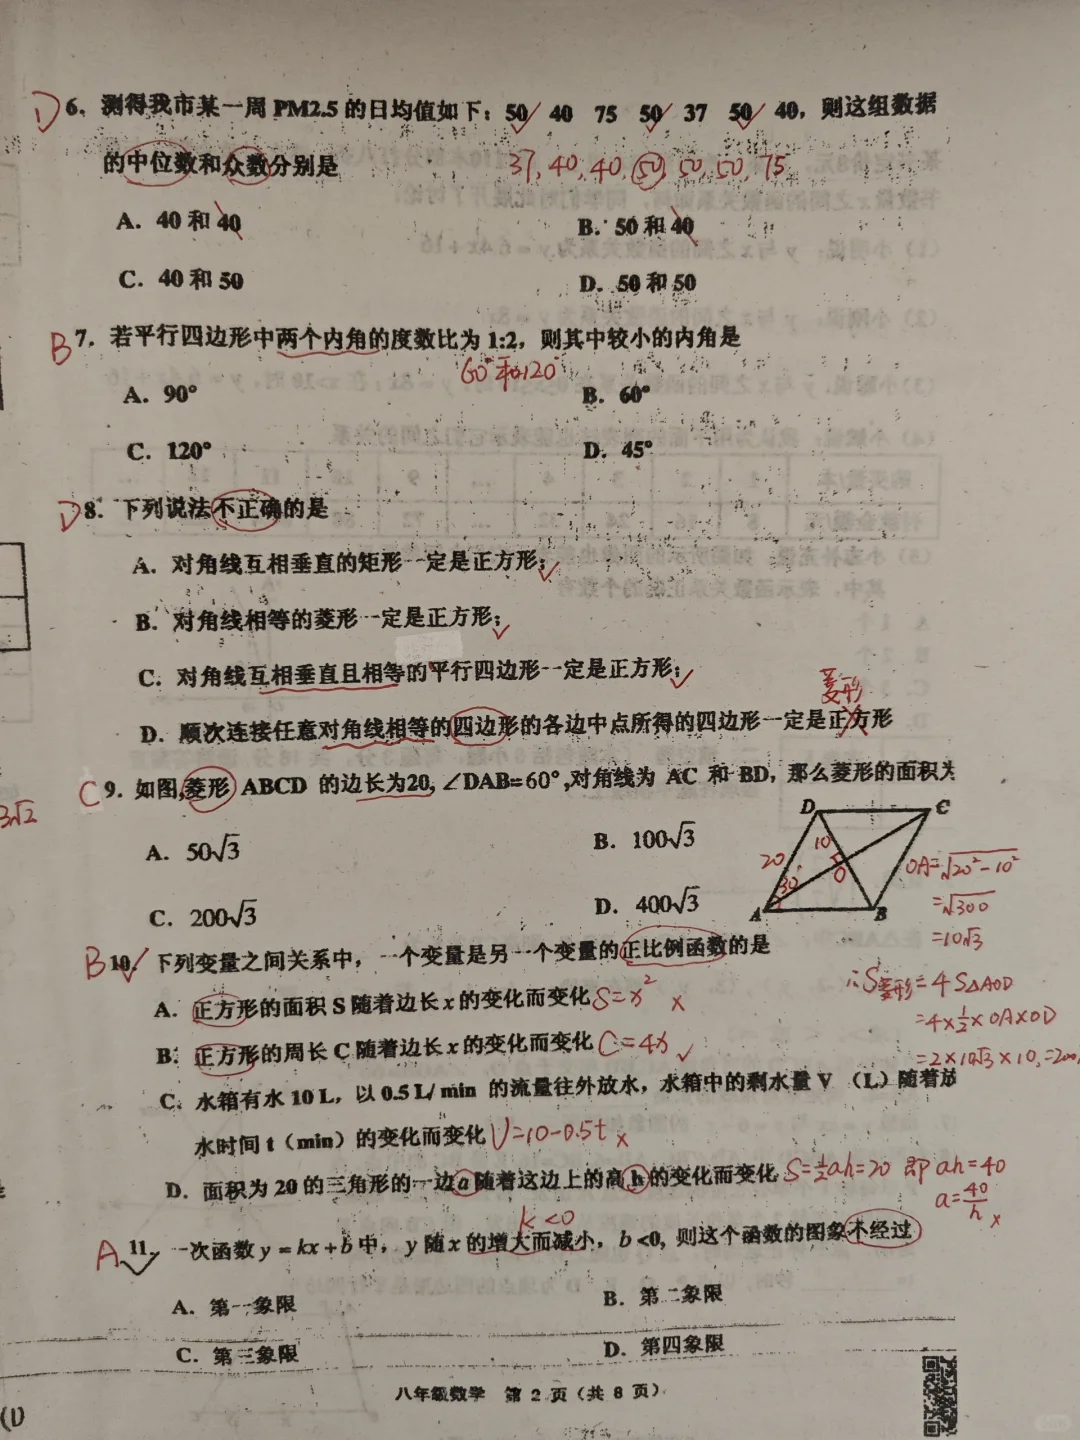 D 6. 测得我市某一周 PM2.5 的日均值如下：50✓ 40 75 50✓ 37 50✓ 40，则这组数据
的中位数和众数分别是 37, 40, 40, 50, 50, 50, 75
A. 40 和 40 B. 50 和 40
C. 40 和 50 D. 50 和 50
B 7. 若平行四边形中两个内角的度数比为 1:2，则其中较小的内角是
60°和120°
A. 90° B. 60°
C. 120° D. 45°
D 8. 下列说法不正确的是
A. 对角线互相垂直的矩形一定是正方形；✓
B. 对角线相等的菱形一定是正方形；✓
C. 对角线互相垂直且相等的平行四边形一定是正方形；✓
菱形
D. 顺次连接任意对角线相等的四边形的各边中点所得的四边形一定是正方形
C 9. 如图,菱形 ABCD 的边长为20, ∠DAB=60°,对角线为 AC 和 BD，那么菱形的面积为
3√2
A. 50√3 B. 100√3
C. 200√3 D. 400√3
D C
20 10 30° O
A B
OA=√20²-10²
=√300
=10√3
∴S菱形=4S△AOD
=4×½×OA×OD
=2×10√3×10=200
B 10. 下列变量之间关系中，一个变量是另一个变量的正比例函数的是
A. 正方形的面积 S 随着边长 x 的变化而变化 S=x² ×
B. 正方形的周长 C 随着边长 x 的变化而变化 C=4x ✓
C. 水箱有水 10 L，以 0.5 L/ min 的流量往外放水，水箱中的剩水量 V （L）随着放
水时间 t（min）的变化而变化 V=10-0.5t ×
D. 面积为 20 的三角形的一边 a 随着这边上的高 h 的变化而变化 S=½ah=20 即 ah=40
a=40/h ×
k<0
A 11. 一次函数 y = kx + b 中，y 随 x 的增大而减小，b <0, 则这个函数的图象不经过
A. 第一象限 B. 第二象限
C. 第三象限 D. 第四象限
八年级数学 第 2 页（共 8 页）